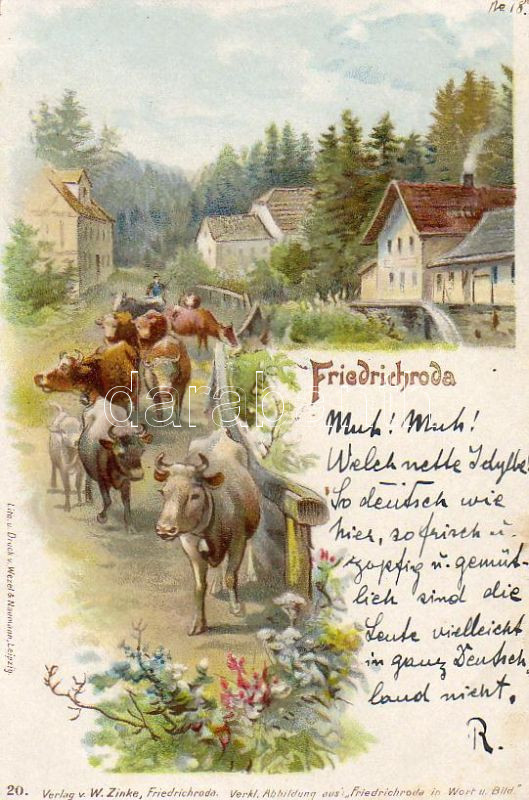 No 18.
Friedrichroda
Muh! Muh!
Welch nette Idylle!
So deutsch wie
hier, so frisch u.
zopfig u. gemüt-
lich sind die
Leute vielleicht
in ganz Deutsch-
land nicht.
R.
darabanth.com
Litho u. Druck v. Wezel & Naumann, Leipzig
20. Verlag v. W. Zinke, Friedrichroda. Verkl. Abbildung aus: „Friedrichroda in Wort u. Bild."